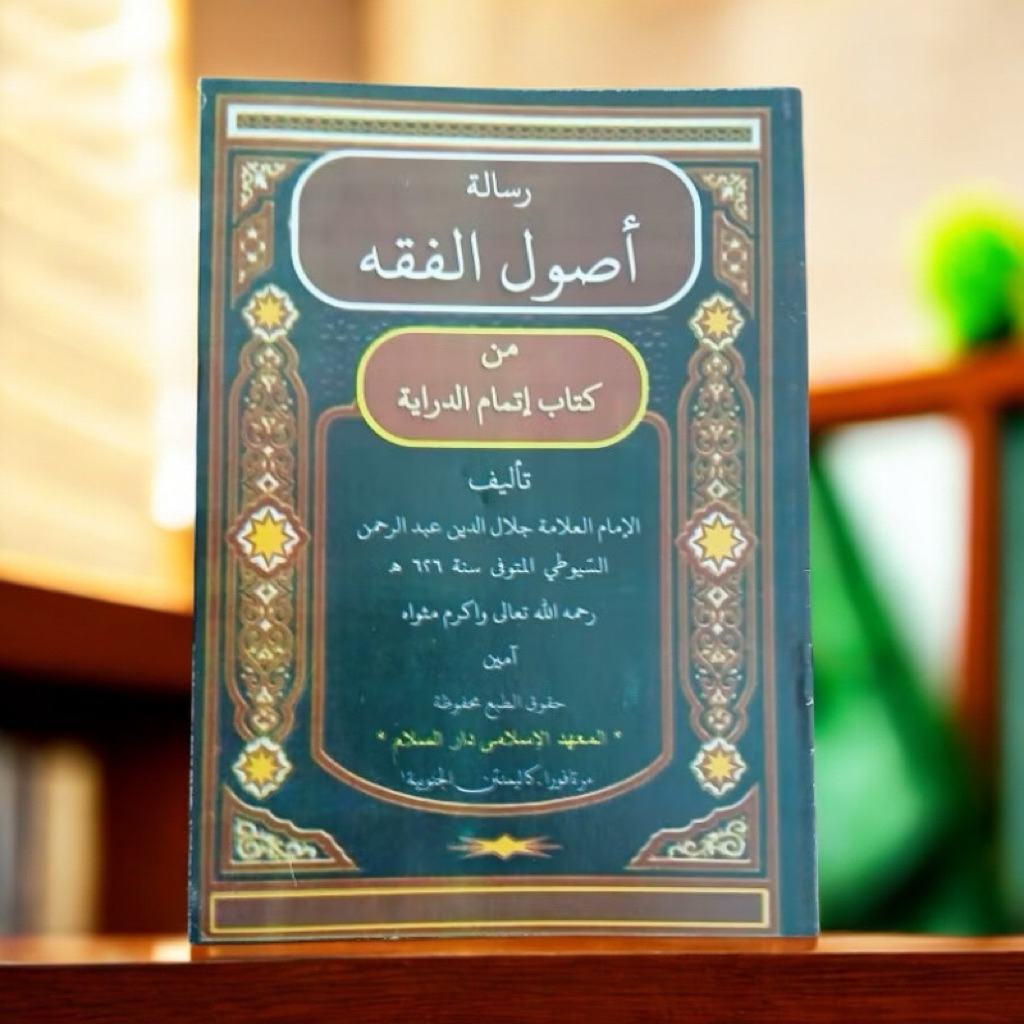 رسالة
أصول الفقه
من
كتاب إتمام الدراية
تأليف
الإمام العلامة جلال الدين عبد الرحمن
السّيوطي المتوفى سنة ٦٢٦ هـ
رحمه الله تعالى واكرم مثواه
آمين
حقوق الطبع محفوظة
* المعهد الإسلامي دار السلام *
مرتافورا. كاليمنتن الجنوبية!